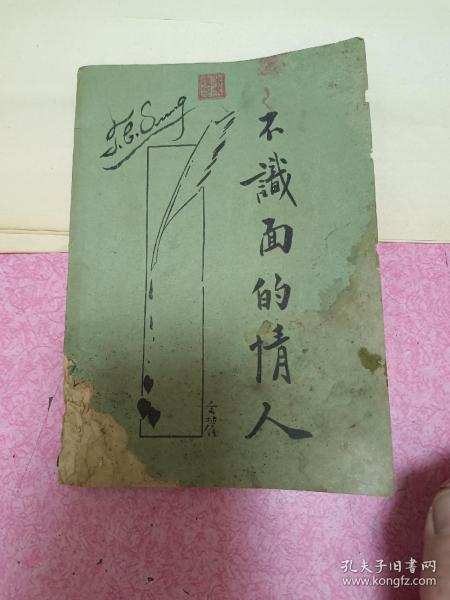 不識面的情人
J.C. Sung
孔夫子旧书网
www.kongfz.com